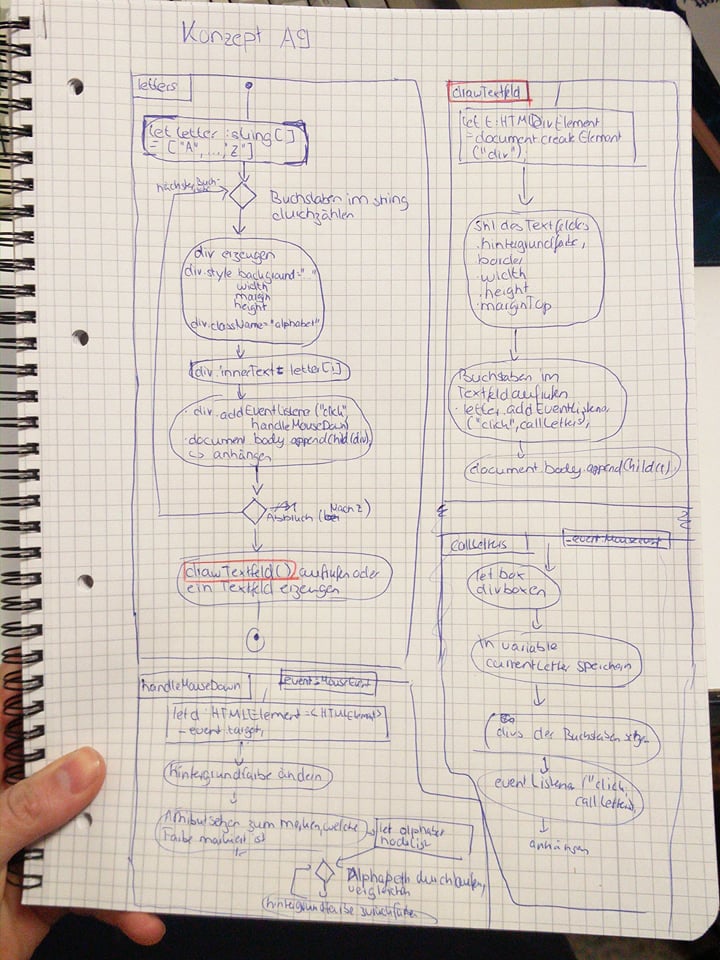 Konzept A9
letters
let letter : string []
= ["A", ..., "Z"]
nächster Buch-
Buchstaben im string
durchzählen
div erzeugen
div.style background="..."
width
margin
height
div.className="alphabet"
div.innerText = letter[i]
div.addEventListene ("click",
handleMouseDown)
document body appendChild(div)
↳ anhängen
Abbruch (Nach Z)
drawTextfeld() aufrufen oder
ein Textfeld erzeugen
handleMouseDown
event:MouseEvent
let d : HTMLElement = <HTMLElement>
event.target;
Hintergrundfarbe ändern
Attribut setzen zum merken, welche
Farbe markiert ist
let alphabet
nodelist
Alphabeth durchlaufen,
vergleichen
hintergrundfarbe
drawTextfeld
let t: HTMLDivElement
= document createElement
("div")
Stil des Textfeldes
.hintergrundfarbe,
border
.width
.height
.marginTop
Buchstaben im
Textfeld aufrufen
letter.addEventListene
("click", callLetters)
document.body.appendChild(t)
callLetters
event:MouseEvent
let box
divboxen
in variable
currentLetter speichern
divs der Buchstaben setzen
event listene ("click,
callLetters)
anhängen